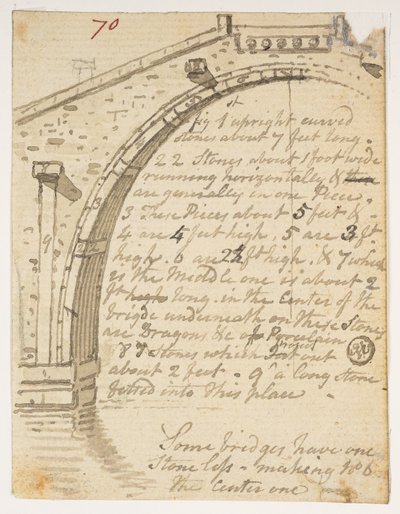 70
fig 1st upright curved
stones about 7 feet long.
2 2 Stones about 1 foot wide
running horizontally &
are generally in one Piece.
3 These Pieces about 5 feet &
4 are 4 feet high, 5 are 3 ft
high. 6 are 2½ ft high, & 7 which
is the Middle one is about 2
ft long. in the Center of the
brigde underneath on these Stones
are Dragons &c of Porcelain
8 8 Stones which project out
about 2 feet - 9 a long stone
fixed into this place -
Some bridges have one
Stone less - making No 6
the Center one
9
2 2
3
1